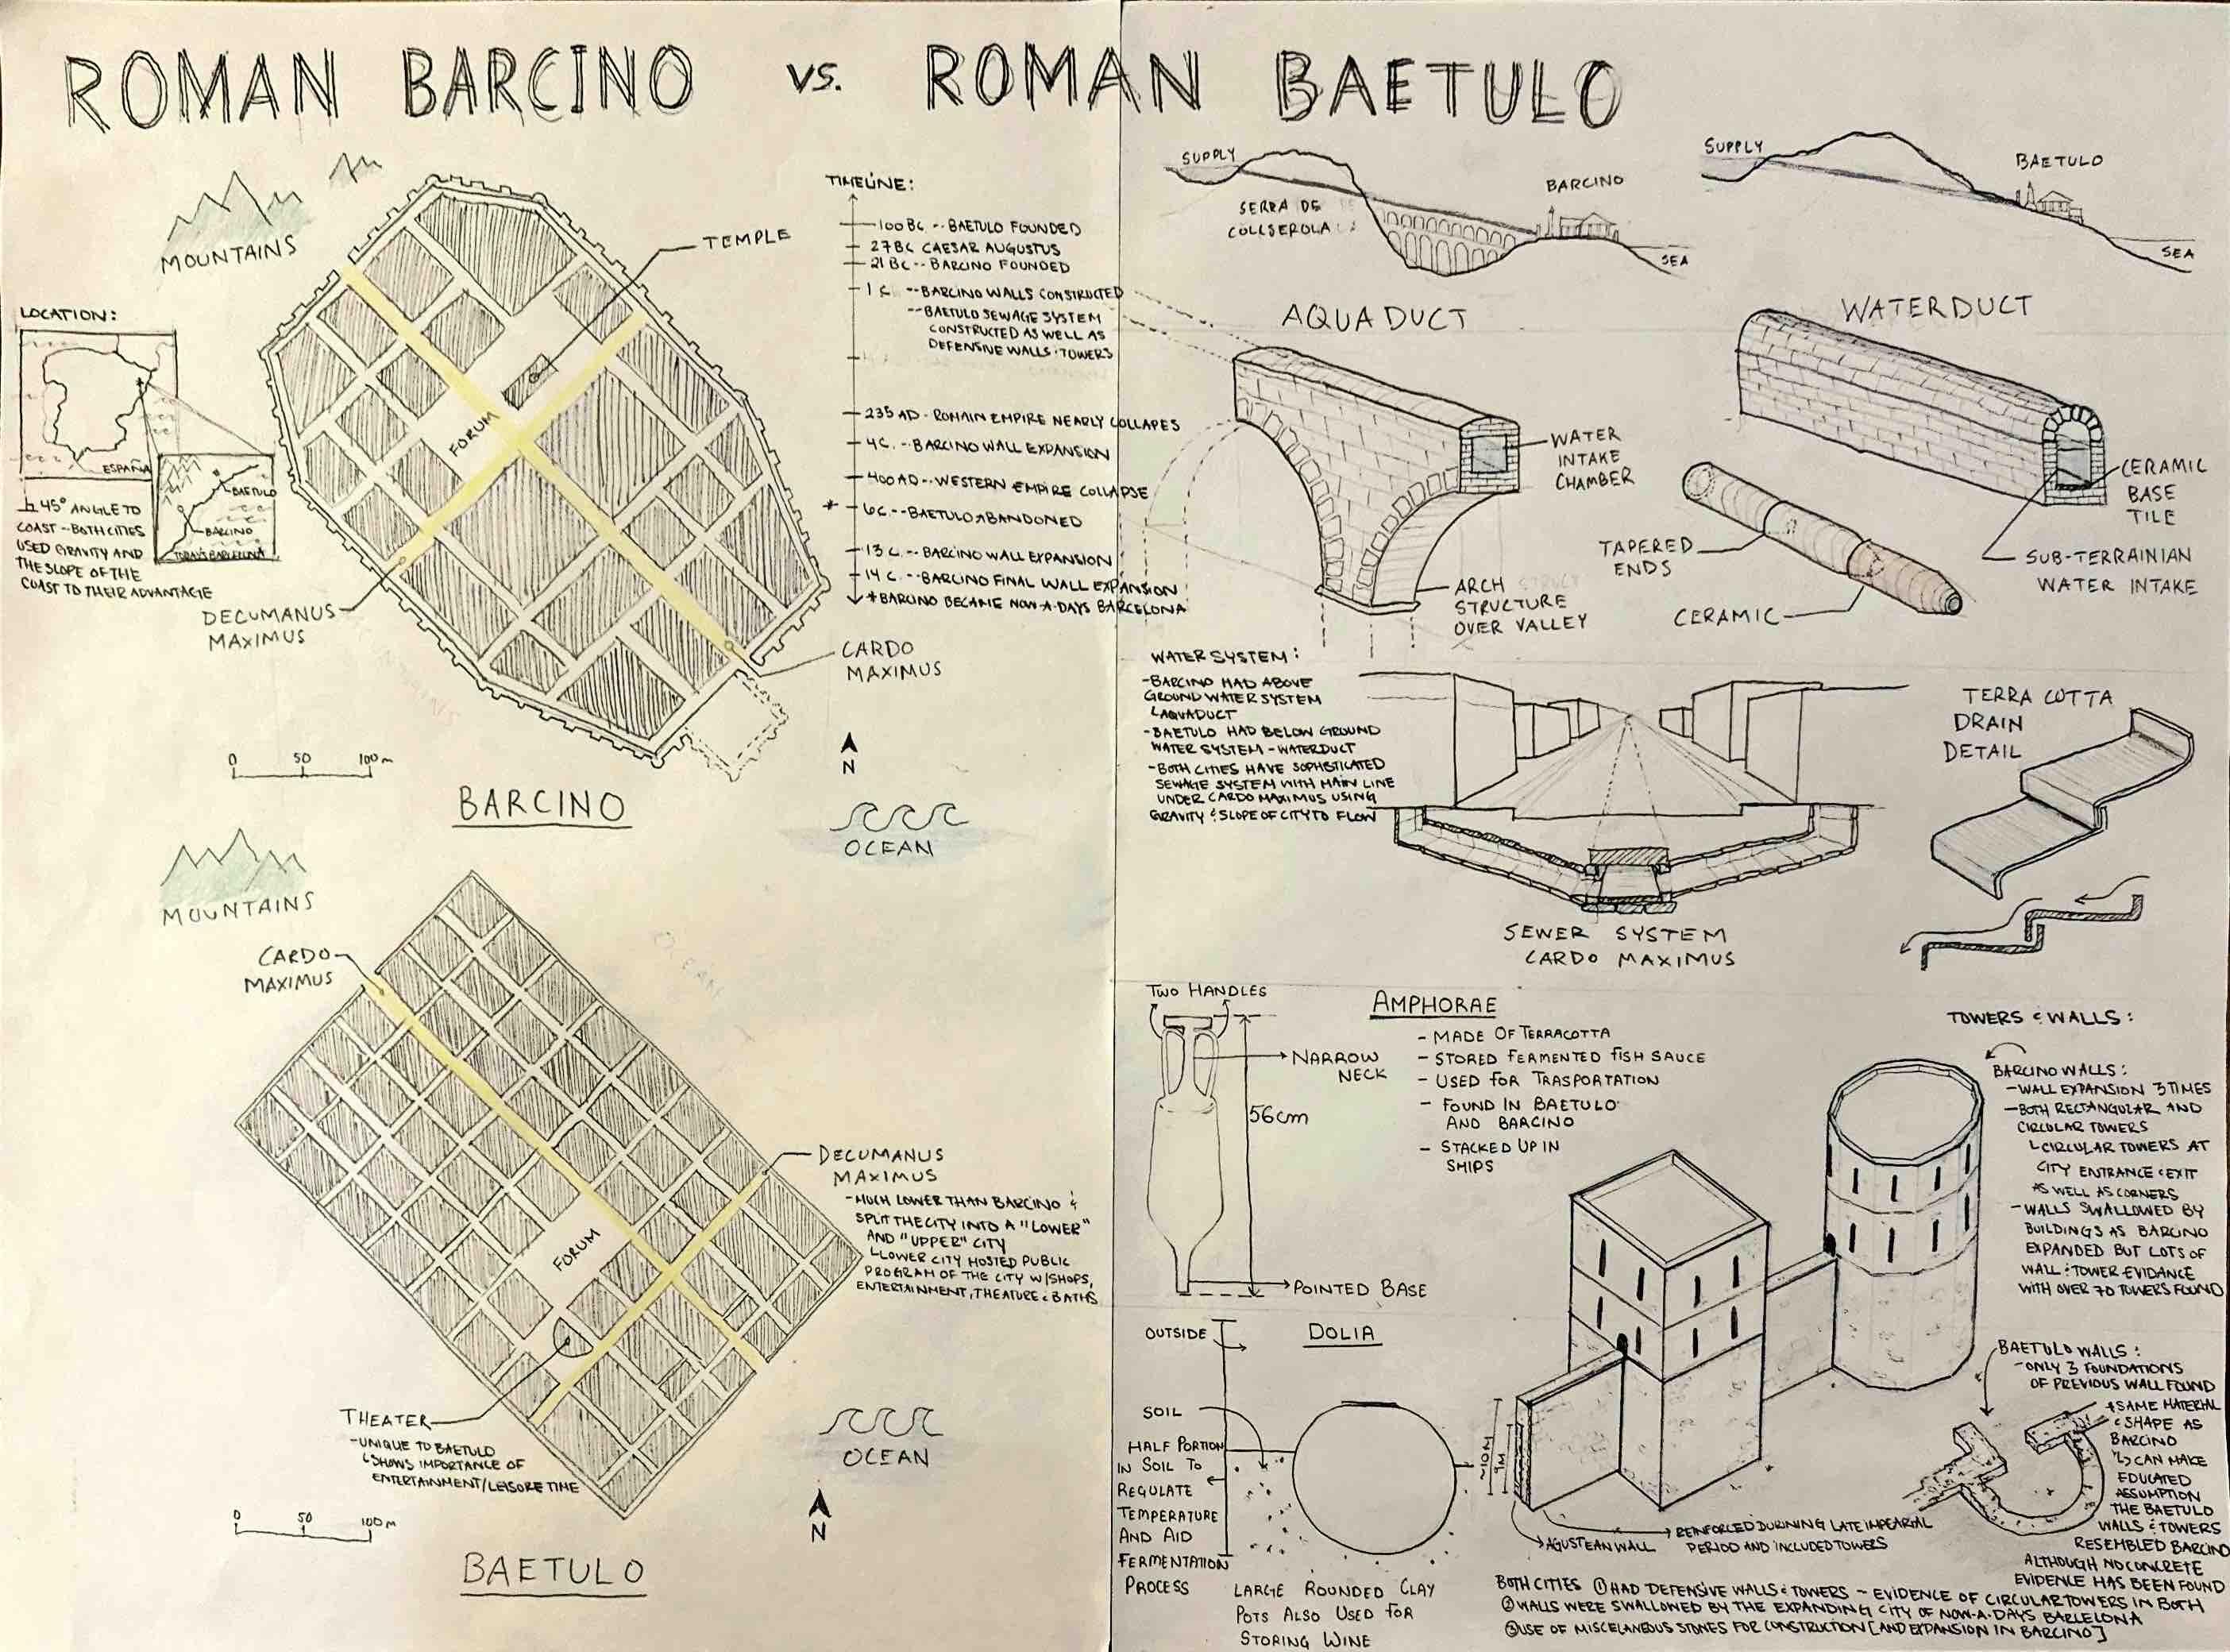 ROMAN BARCINO vs. ROMAN BAETULO
MOUNTAINS
TEMPLE
FORUM
LOCATION:
ESPAÑA
BAETULO
BARCINO
TODAY'S BARCELONA
45° ANGLE TO
COAST - BOTH CITIES
USED GRAVITY AND
THE SLOPE OF THE
COAST TO THEIR ADVANTAGE
DECUMANUS
MAXIMUS
CARDO
MAXIMUS
0 50 100 m
N
BARCINO
OCEAN
TIMELINE:
100 BC -- BAETULO FOUNDED
27 BC CAESAR AUGUSTUS
21 BC -- BARCINO FOUNDED
1 C. -- BARCINO WALLS CONSTRUCTED
-- BAETULO SEWAGE SYSTEM
CONSTRUCTED AS WELL AS
DEFENSIVE WALLS & TOWERS
235 AD - ROMAIN EMPIRE NEARLY COLLAPES
4 C. -- BARCINO WALL EXPANSION
400 AD -- WESTERN EMPIRE COLLAPSE
* 6 C. -- BAETULO ABANDONED
13 C. -- BARCINO WALL EXPANSION
14 C. -- BARCINO FINAL WALL EXPANSION
* BARCINO BECAME NOW-A-DAYS BARCELONA
MOUNTAINS
CARDO
MAXIMUS
FORUM
DECUMANUS
MAXIMUS
- MUCH LOWER THAN BARCINO &
SPLIT THE CITY INTO A "LOWER"
AND "UPPER" CITY
LOWER CITY HOSTED PUBLIC
PROGRAM OF THE CITY W/SHOPS,
ENTERTAINMENT, THEATURE & BATHS
THEATER
- UNIQUE TO BAETULO
SHOWS IMPORTANCE OF
ENTERTAINMENT/LEISORE TIME
OCEAN
0 50 100 m
N
BAETULO
SUPPLY
SERRA DE
COLLSEROLA
BARCINO
SEA
SUPPLY
BAETULO
SEA
AQUADUCT
WATER
INTAKE
CHAMBER
ARCH
STRUCTURE
OVER VALLEY
WATERDUCT
CERAMIC
BASE
TILE
SUB-TERRAINIAN
WATER INTAKE
TAPERED
ENDS
CERAMIC
WATER SYSTEM:
- BARCINO HAD ABOVE
GROUND WATER SYSTEM
AQUADUCT
- BAETULO HAD BELOW GROUND
WATER SYSTEM - WATERDUCT
- BOTH CITIES HAVE SOPHSTICATED
SEWAGE SYSTEM WITH MAIN LINE
UNDER CARDO MAXIMUS USING
GRAVITY & SLOPE OF CITY TO FLOW
SEWER SYSTEM
CARDO MAXIMUS
TERRA COTTA
DRAIN
DETAIL
TWO HANDLES
NARROW
NECK
56cm
POINTED BASE
AMPHORAE
- MADE OF TERRACOTTA
- STORED FERMENTED FISH SAUCE
- USED FOR TRASPORTATION
- FOUND IN BAETULO
AND BARCINO
- STACKED UP IN
SHIPS
OUTSIDE
DOLIA
SOIL
HALF PORTION
IN SOIL TO
REGULATE
TEMPERATURE
AND AID
FERMENTATION
PROCESS
LARGE ROUNDED CLAY
POTS ALSO USED FOR
STORING WINE
TOWERS & WALLS:
BARCINO WALLS:
- WALL EXPANSION 3 TIMES
- BOTH RECTANGULAR AND
CIRCULAR TOWERS
CIRCULAR TOWERS AT
CITY ENTRANCE & EXIT
AS WELL AS CORNERS
- WALLS SWALLOWED BY
BUILDINGS AS BARCINO
EXPANDED BUT LOTS OF
WALL & TOWER EVIDANCE
WITH OVER 70 TOWERS FOUND
~10M
9M
AGUSTEAN WALL
REINFORCED DURINING LATE IMPEARIAL
PERIOD AND INCLUDED TOWERS
BAETULO WALLS:
- ONLY 3 FOUNDATIONS
OF PREVIOUS WALL FOUND
* SAME MATERIAL
& SHAPE AS
BARCINO
CAN MAKE
EDUCATED
ASSUMPTION
THE BAETULO
WALLS & TOWERS
RESEMBLED BARCINO
ALTHOUGH NO CONCRETE
EVIDENCE HAS BEEN FOUND
BOTH CITIES ① HAD DEFENSIVE WALLS & TOWERS - EVIDENCE OF CIRCULAR TOWERS IN BOTH
② WALLS WERE SWALLOWED BY THE EXPANDING CITY OF NOW-A-DAYS BARLELONA
③ USE OF MISCELANEOUS STONES FOR CONSTRUCTION [AND EXPANSION IN BARCINO]